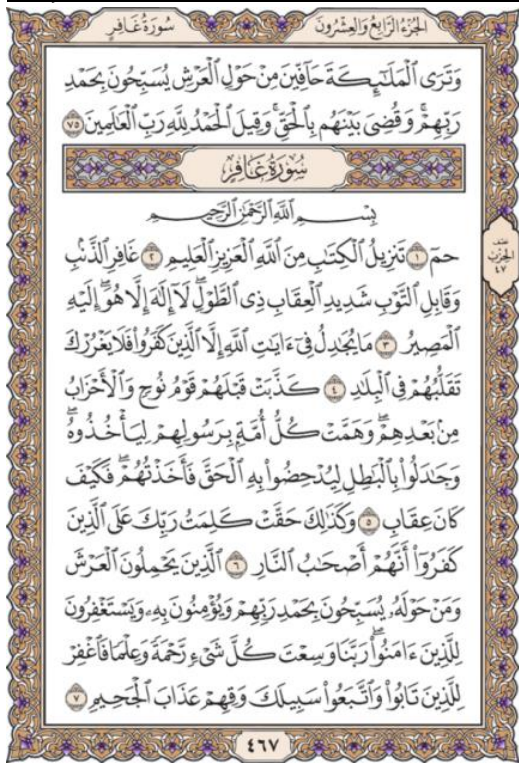 الجزء الرابع والعشرون
سورة غافر
وَتَرَى ٱلْمَلَٰٓئِكَةَ حَآفِّينَ مِنْ حَوْلِ ٱلْعَرْشِ يُسَبِّحُونَ بِحَمْدِ
رَبِّهِمْ ۖ وَقُضِىَ بَيْنَهُم بِٱلْحَقِّ وَقِيلَ ٱلْحَمْدُ لِلَّهِ رَبِّ ٱلْعَٰلَمِينَ ٧٥
سُورَةُ غَافِرٍ
بِسْمِ ٱللَّهِ ٱلرَّحْمَٰنِ ٱلرَّحِيمِ
حمٓ ١ تَنزِيلُ ٱلْكِتَٰبِ مِنَ ٱللَّهِ ٱلْعَزِيزِ ٱلْعَلِيمِ ٢ غَافِرِ ٱلذَّنۢبِ
وَقَابِلِ ٱلتَّوْبِ شَدِيدِ ٱلْعِقَابِ ذِى ٱلطَّوْلِ ۖ لَآ إِلَٰهَ إِلَّا هُوَ ۖ إِلَيْهِ
ٱلْمَصِيرُ ٣ مَا يُجَٰدِلُ فِىٓ ءَايَٰتِ ٱللَّهِ إِلَّا ٱلَّذِينَ كَفَرُوا۟ فَلَا يَغْرُرْكَ
تَقَلُّبُهُمْ فِى ٱلْبِلَٰدِ ٤ كَذَّبَتْ قَبْلَهُمْ قَوْمُ نُوحٍ وَٱلْأَحْزَابُ
مِنۢ بَعْدِهِمْ ۖ وَهَمَّتْ كُلُّ أُمَّةٍۭ بِرَسُولِهِمْ لِيَأْخُذُوهُ ۖ
وَجَٰدَلُوا۟ بِٱلْبَٰطِلِ لِيُدْحِضُوا۟ بِهِ ٱلْحَقَّ فَأَخَذْتُهُمْ ۖ فَكَيْفَ
كَانَ عِقَابِ ٥ وَكَذَٰلِكَ حَقَّتْ كَلِمَتُ رَبِّكَ عَلَى ٱلَّذِينَ
كَفَرُوٓا۟ أَنَّهُمْ أَصْحَٰبُ ٱلنَّارِ ٦ ٱلَّذِينَ يَحْمِلُونَ ٱلْعَرْشَ
وَمَنْ حَوْلَهُۥ يُسَبِّحُونَ بِحَمْدِ رَبِّهِمْ وَيُؤْمِنُونَ بِهِۦ وَيَسْتَغْفِرُونَ
لِلَّذِينَ ءَامَنُوا۟ ۖ رَبَّنَا وَسِعْتَ كُلَّ شَىْءٍ رَّحْمَةً وَعِلْمًا فَٱغْفِرْ
لِلَّذِينَ تَابُوا۟ وَٱتَّبَعُوا۟ سَبِيلَكَ وَقِهِمْ عَذَابَ ٱلْجَحِيمِ ٧
نصف
الحزب
٤٧
٤٦٧